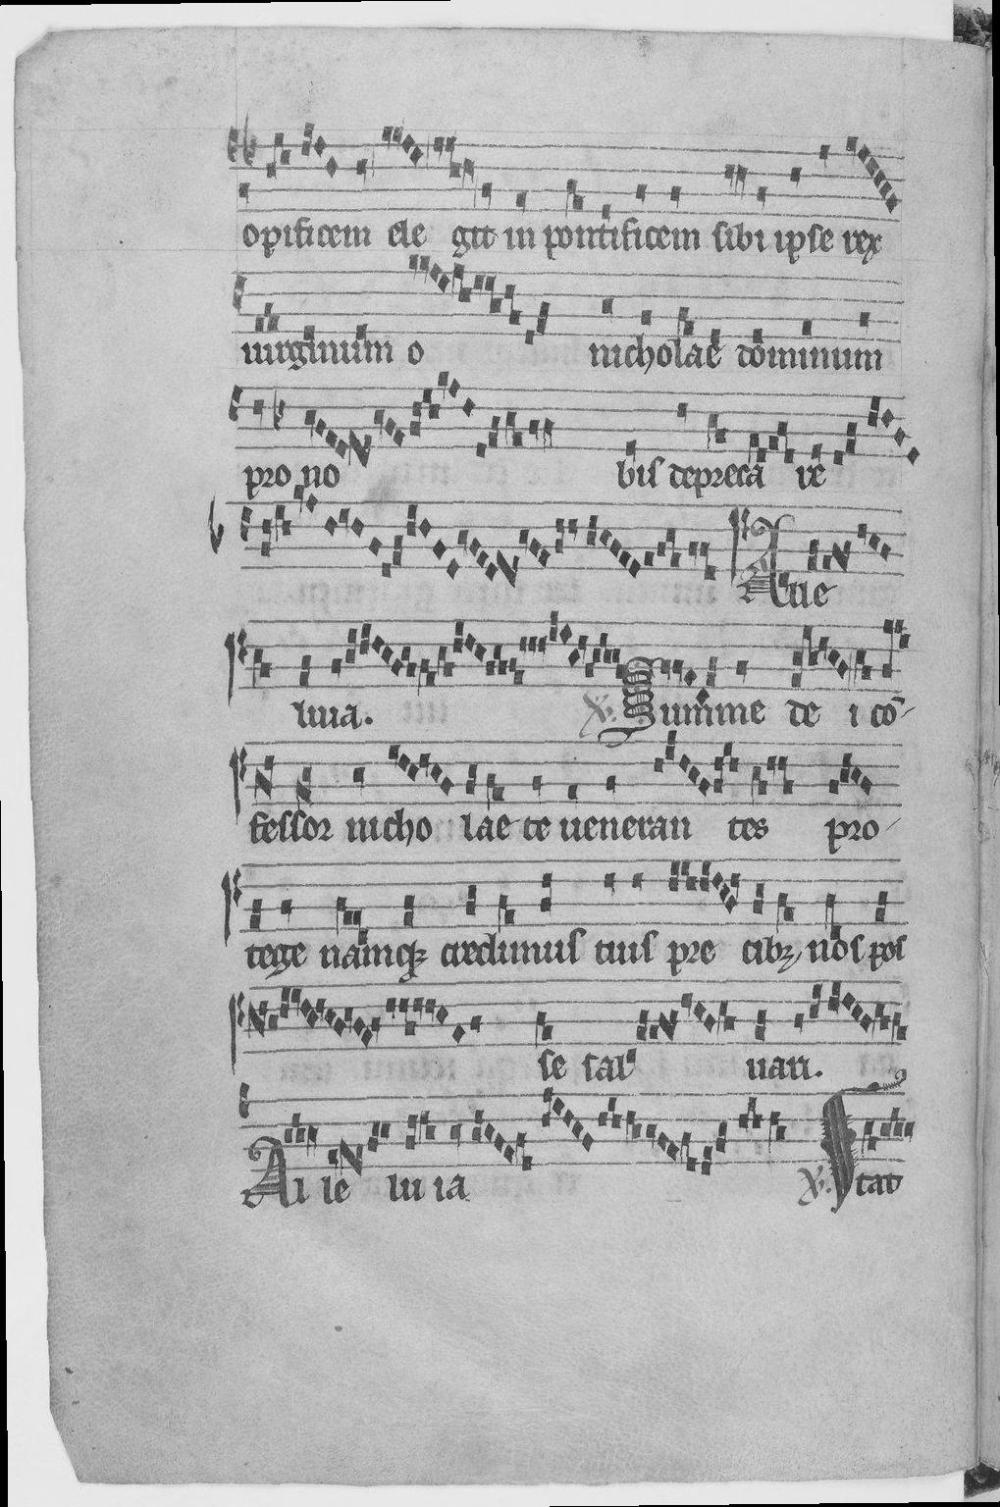 opificem ele git in pontificem sibi ipse rex
uirginum o nicholae dominum
pro no bis depreca re
Alle
luia. V. Summe de i cō
fessor nicho lae te ueneran tes pro
tege namq; credimus tuis pre cibꝫ nos pos
se sal uari.
Al le lu ia V. Stat